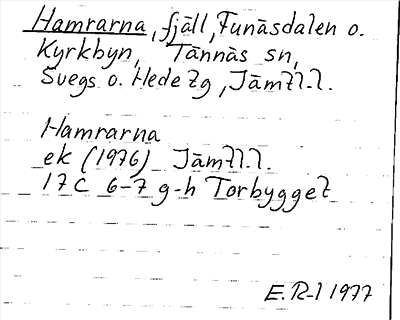 Hamrarna, fjäll, Funäsdalen o.
Kyrkbyn, Tännäs sn,
Svegs o. Hede tg, Jämtl. l.
Hamrarna
ek (1976) Jämtl. l.
17C 6-7 g-h Torbygget
E. R-l 1977